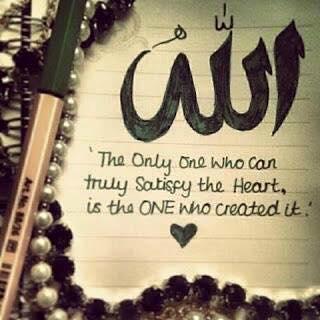 الله
'The Only One who can
truly Satisfy the Heart,
is the ONE who created it.'